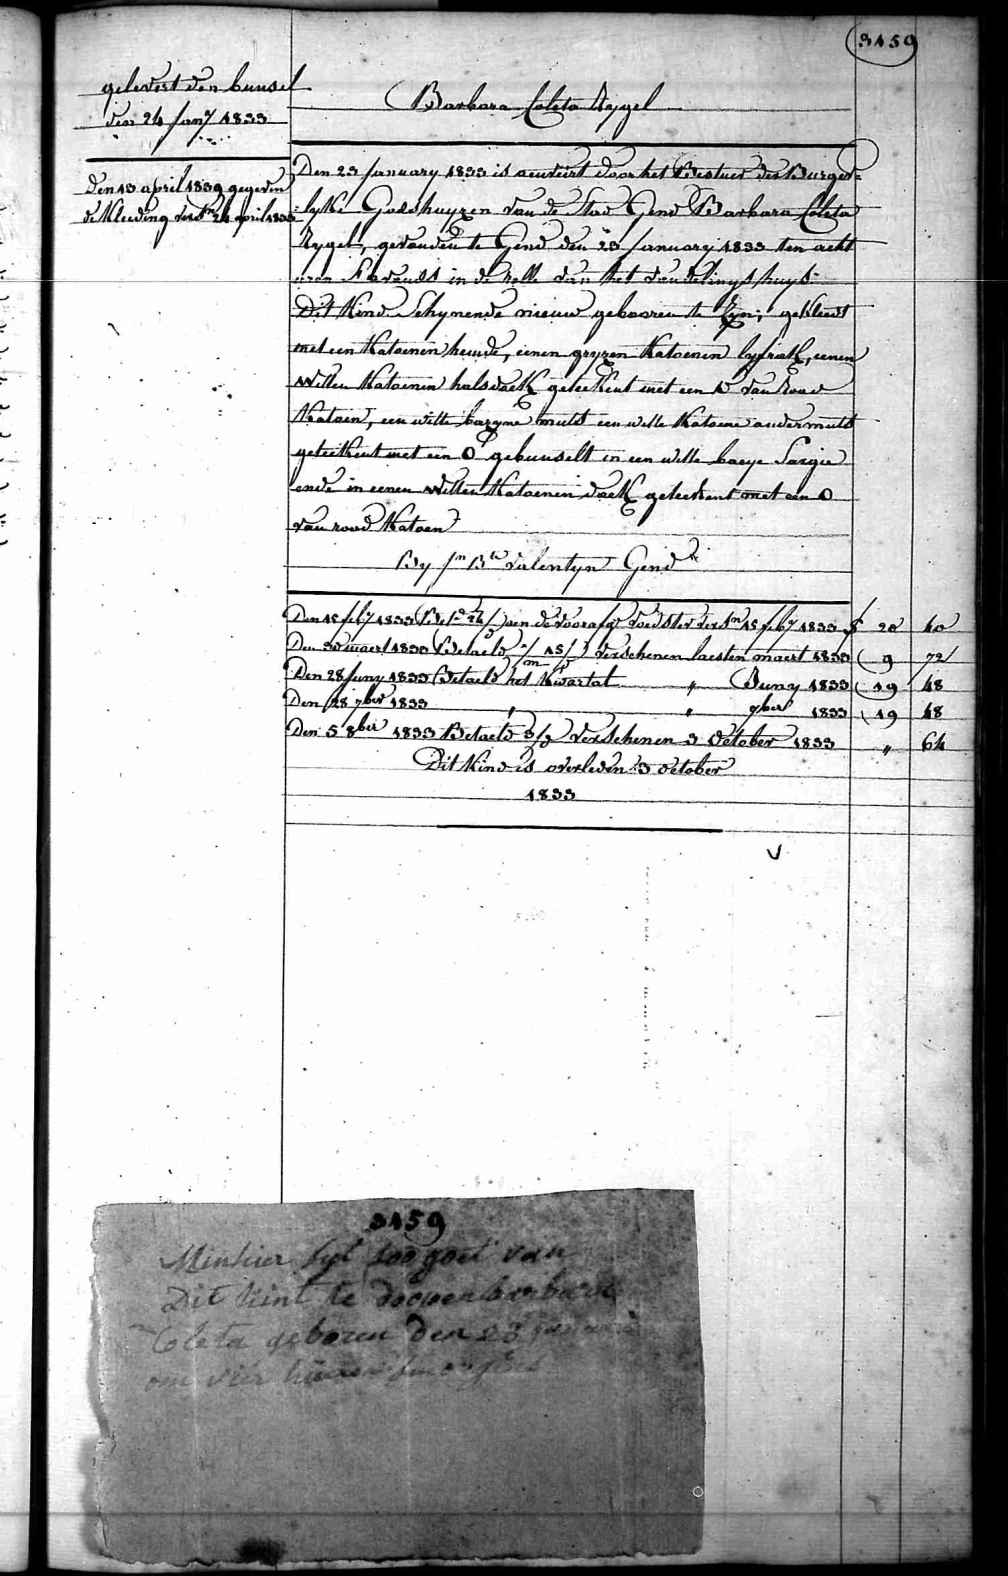 3159
gelevert den bunsel
den 24 Jany 1833
Den 13 april 1833 gegeven
de Kleeding versn 24 april 1833
Barbara Coleta Rygel
Den 23 January 1833 is aenveirt door het Bestuer der Burger=
=lyke Godshuyzen van de Stad Gend Barbara Coleta
Rygel, gevonden te Gend den 23 January 1833 ten acht
uren S'avonds in de rolle van het vondelingshuys.
Dit Kind Schynende nieuw gebooren te Zyn; gekleed
met een Katoenen hemde, eenen gryzen Katoenen lyfrok, eenen
witten Katoenen halsdoek geteekent met een van rood
Katoen, een witte bazyne muts een witte Katoene ondermuts
geteekent met een O gebunselt in een witte baeye Sargie
ende in eenen witten Katoenen doek geteekent met een O
van rood Katoen
By Jn Bte Valentyn Gend
Den 15 feby 1833 aen de voorafg Voedster versn 15 feby 1833 20 60
Den 30 maert 1833 Betaeld 15/ verschenen laesten maert 1833 9 72
Den 28 Juny 1833 Betaeld het Kwartal " Juny 1833 19 48
Den 28 7ber 1833 " " 7ber 1833 19 48
Den 5 8ber 1833 Betaeld 3/ verschenen 3 October 1833 " 64
Dit Kind is overleden 3 October
1833
3159
Minhier syt soo goet van
Dit kint te doopen barbara
Coleta geboren den 23 januari
om vier hueren smorgens